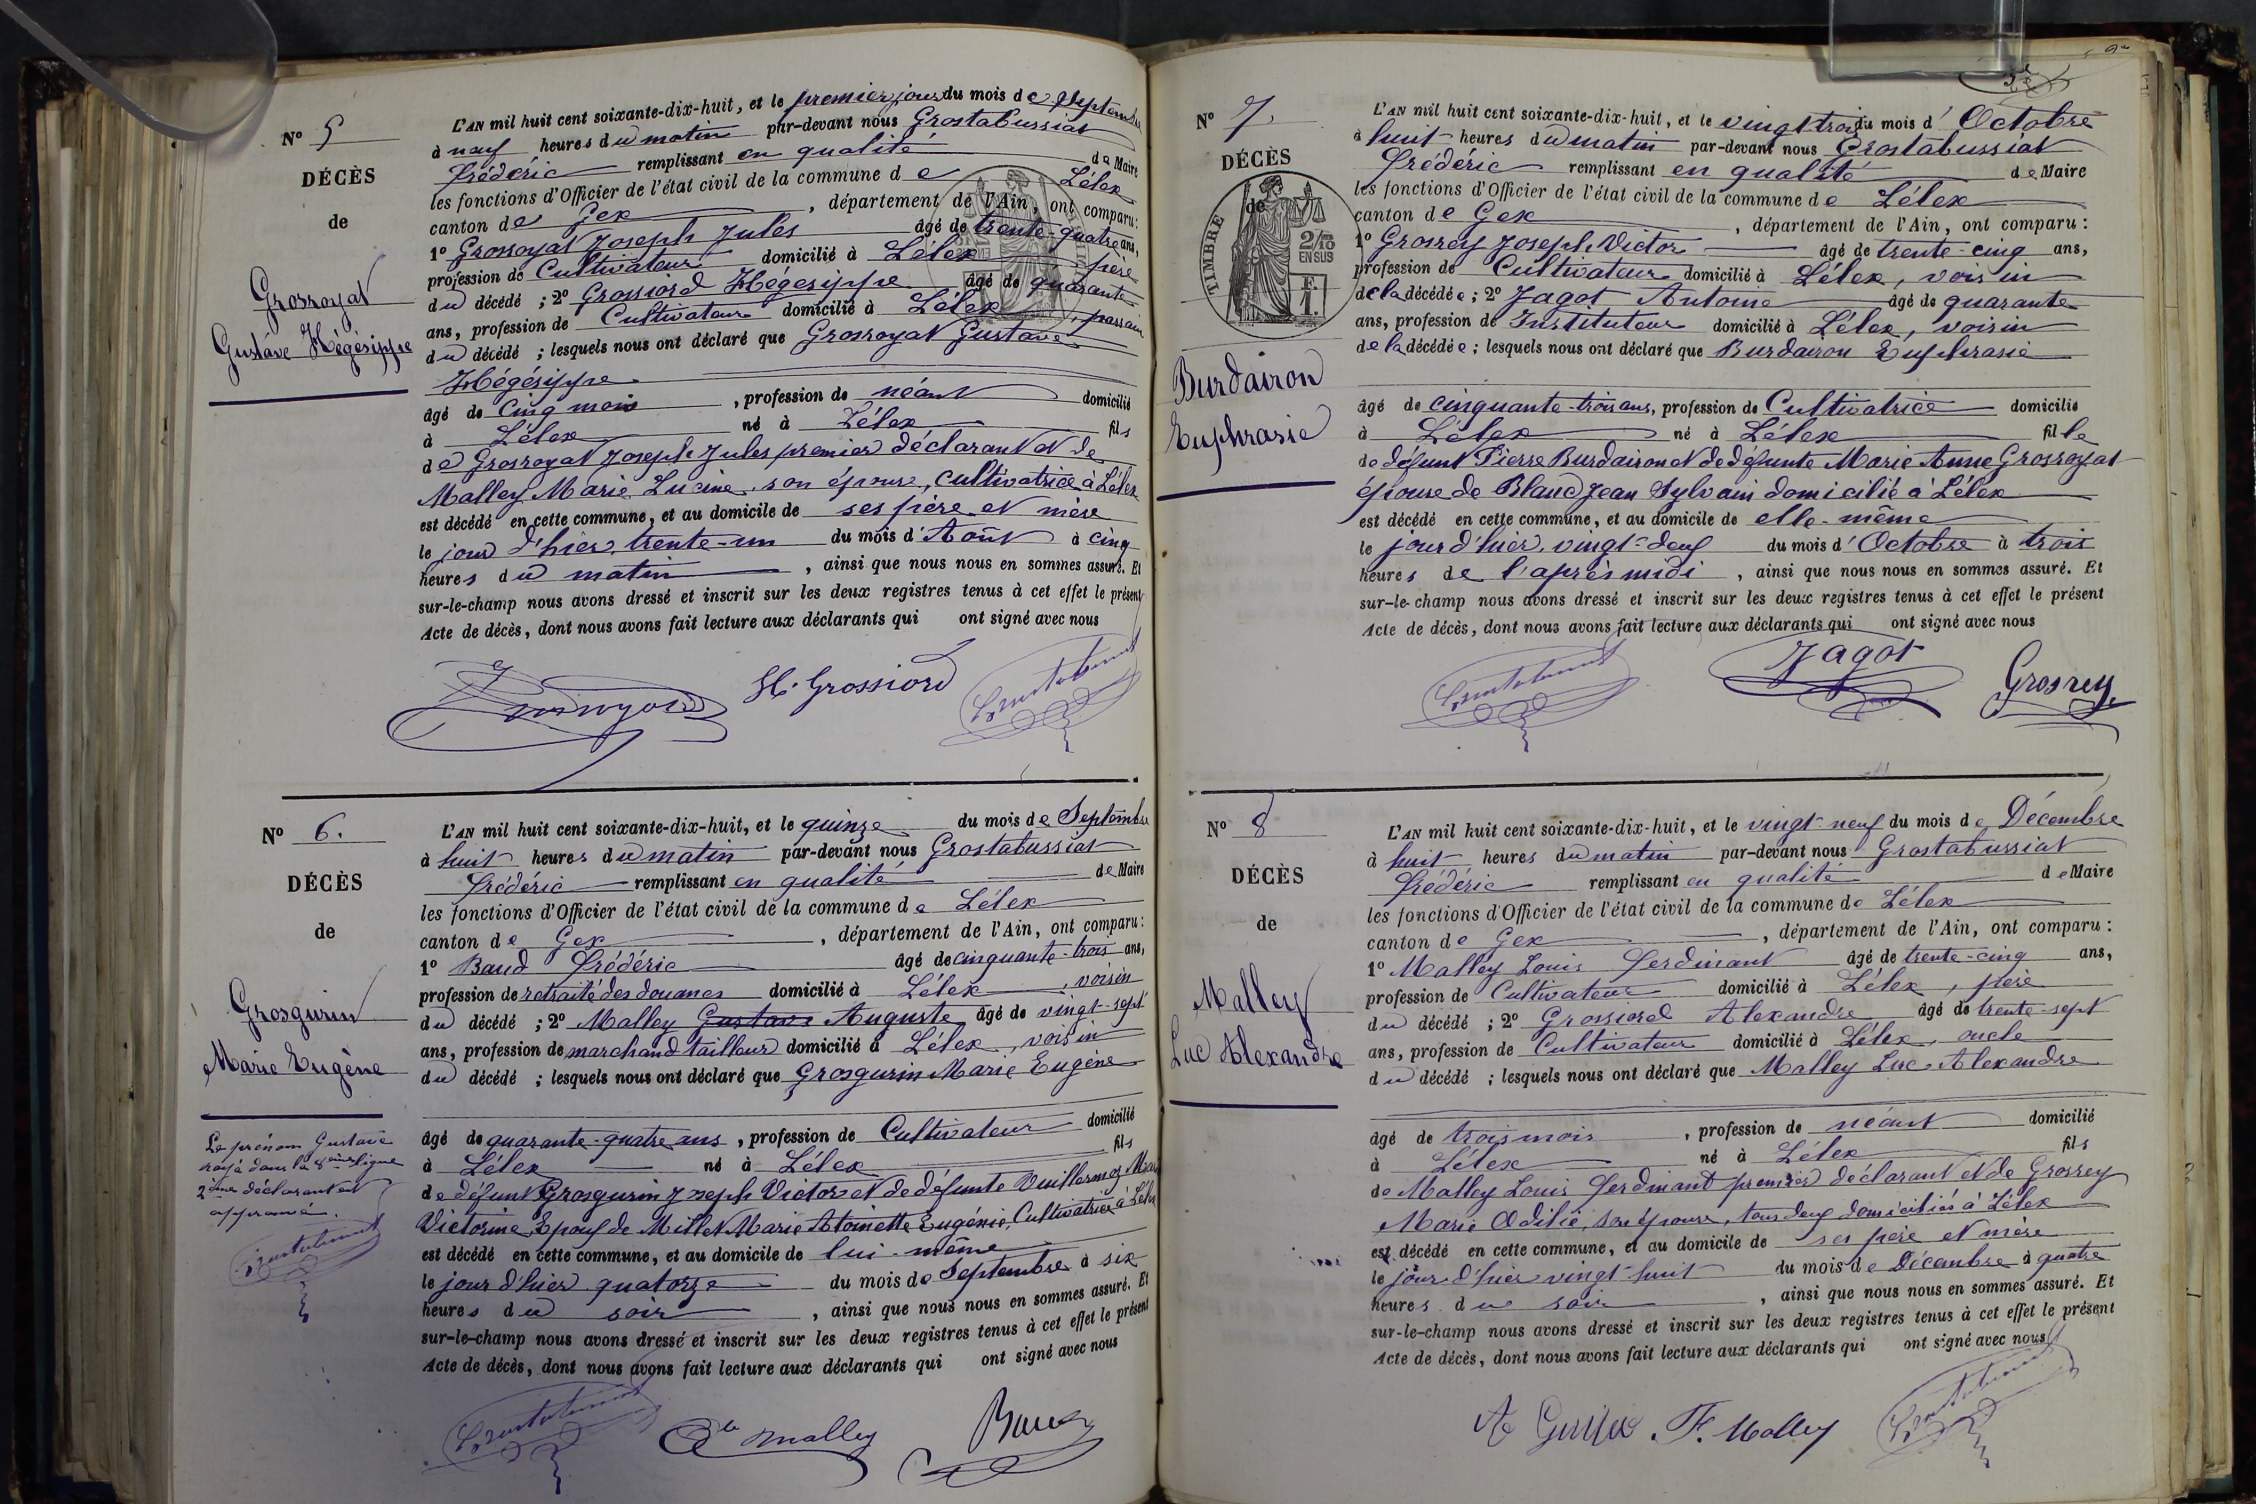 N° 5
DÉCÈS
de
Grosroyat
Gustave Hégésippe
L'AN mil huit cent soixante-dix-huit, et le premier jour du mois de Septembre
à neuf heures du matin par-devant nous Grostabussiat
Frédéric remplissant en qualité de Maire
les fonctions d'Officier de l'état civil de la commune de Lélex
canton de Gex, département de l'Ain, ont comparu :
1° Grosroyat Joseph Jules âgé de trente-quatre ans,
profession de Cultivateur domicilié à Lélex père
du décédé ; 2° Grossiord Hégésippe âgé de quarante
ans, profession de Cultivateur domicilié à Lélex, parrain
du décédé ; lesquels nous ont déclaré que Grosroyat Gustave
Hégésippe
âgé de cinq mois, profession de néant domicilié
à Lélex né à Lélex fils
de Grosroyat Joseph Jules premier déclarant et de
Malley Marie Lucine son épouse, cultivatrice à Lélex
est décédé en cette commune, et au domicile de ses père et mère
le jour d'hier, trente-un du mois d'Août à cinq
heures du matin, ainsi que nous nous en sommes assuré. Et
sur-le-champ nous avons dressé et inscrit sur les deux registres tenus à cet effet le présent
Acte de décès, dont nous avons fait lecture aux déclarants qui ont signé avec nous
H. Grossiord
N° 6.
DÉCÈS
de
Grosgurin
Marie Eugène
Le prénom Gustave
rayé dans la 8ème ligne
2ème déclarant est
approuvé.
L'AN mil huit cent soixante-dix-huit, et le quinze du mois de Septembre
à huit heures du matin par-devant nous Grostabussiat
Frédéric remplissant en qualité de Maire
les fonctions d'Officier de l'état civil de la commune de Lélex
canton de Gex, département de l'Ain, ont comparu :
1° Baud Frédéric âgé de cinquante-trois ans,
profession de retraité des douanes domicilié à Lélex, voisin
du décédé ; 2° Malley Gustave Auguste âgé de vingt-sept
ans, profession de marchand tailleur domicilié à Lélex, voisin
du décédé ; lesquels nous ont déclaré que Grosgurin Marie Eugène
âgé de quarante-quatre ans, profession de Cultivateur domicilié
à Lélex né à Lélex fils
de défunt Grosgurin Joseph Victor et de défunte Vuillermoz Marie
Victorine Epoux de Millet Marie Antoinette Eugénie, Cultivatrice à Lélex
est décédé en cette commune, et au domicile de lui-même
le jour d'hier quatorze du mois de Septembre à six
heures du soir, ainsi que nous nous en sommes assuré. Et
sur-le-champ nous avons dressé et inscrit sur les deux registres tenus à cet effet le présent
Acte de décès, dont nous avons fait lecture aux déclarants qui ont signé avec nous
malley
Baud
N° 7.
DÉCÈS
de
TIMBRE
2/10
EN SUS
F.
1.
Burdairon
Euphrasie
L'AN mil huit cent soixante-dix-huit, et le vingt trois du mois d'Octobre
à huit heures du matin par-devant nous Grostabussiat
Frédéric remplissant en qualité de Maire
les fonctions d'Officier de l'état civil de la commune de Lélex
canton de Gex, département de l'Ain, ont comparu :
1° Grosrey Joseph Victor âgé de trente-cinq ans,
profession de Cultivateur domicilié à Lélex, voisin
de la décédée ; 2° Jagot Antoine âgé de quarante
ans, profession de Instituteur domicilié à Lélex, voisin
de la décédée ; lesquels nous ont déclaré que Burdairon Euphrasie
âgé de cinquante-trois ans, profession de Cultivatrice domicilié
à Lélex né à Lélex fille
de défunt Pierre Burdairon et de défunte Marie Anne Grosroyat
épouse de Blanc Jean Sylvain domicilié à Lélex
est décédé en cette commune, et au domicile de elle-même
le jour d'hier, vingt-deux du mois d'Octobre à trois
heures de l'après midi, ainsi que nous nous en sommes assuré. Et
sur-le-champ nous avons dressé et inscrit sur les deux registres tenus à cet effet le présent
Acte de décès, dont nous avons fait lecture aux déclarants qui ont signé avec nous
Jagot
Grosrey
N° 8
DÉCÈS
de
Malley
Luc Alexandre
L'AN mil huit cent soixante-dix-huit, et le vingt-neuf du mois de Décembre
à huit heures du matin par-devant nous Grostabussiat
Frédéric remplissant en qualité de Maire
les fonctions d'Officier de l'état civil de la commune de Lélex
canton de Gex, département de l'Ain, ont comparu :
1° Malley Louis Ferdinant âgé de trente-cinq ans,
profession de Cultivateur domicilié à Lélex, père
du décédé ; 2° Grossiord Alexandre âgé de trente-sept
ans, profession de Cultivateur domicilié à Lélex, oncle
du décédé ; lesquels nous ont déclaré que Malley Luc Alexandre
âgé de trois mois, profession de néant domicilié
à Lélex né à Lélex fils
de Malley Louis Ferdinant premier déclarant et de Grosrey
Marie Odilie, son épouse, tous deux domiciliés à Lélex
est décédé en cette commune, et au domicile de ses père et mère
le jour d'hier vingt-huit du mois de Décembre à quatre
heures du soir, ainsi que nous nous en sommes assuré. Et
sur-le-champ nous avons dressé et inscrit sur les deux registres tenus à cet effet le présent
Acte de décès, dont nous avons fait lecture aux déclarants qui ont signé avec nous
F. Malley